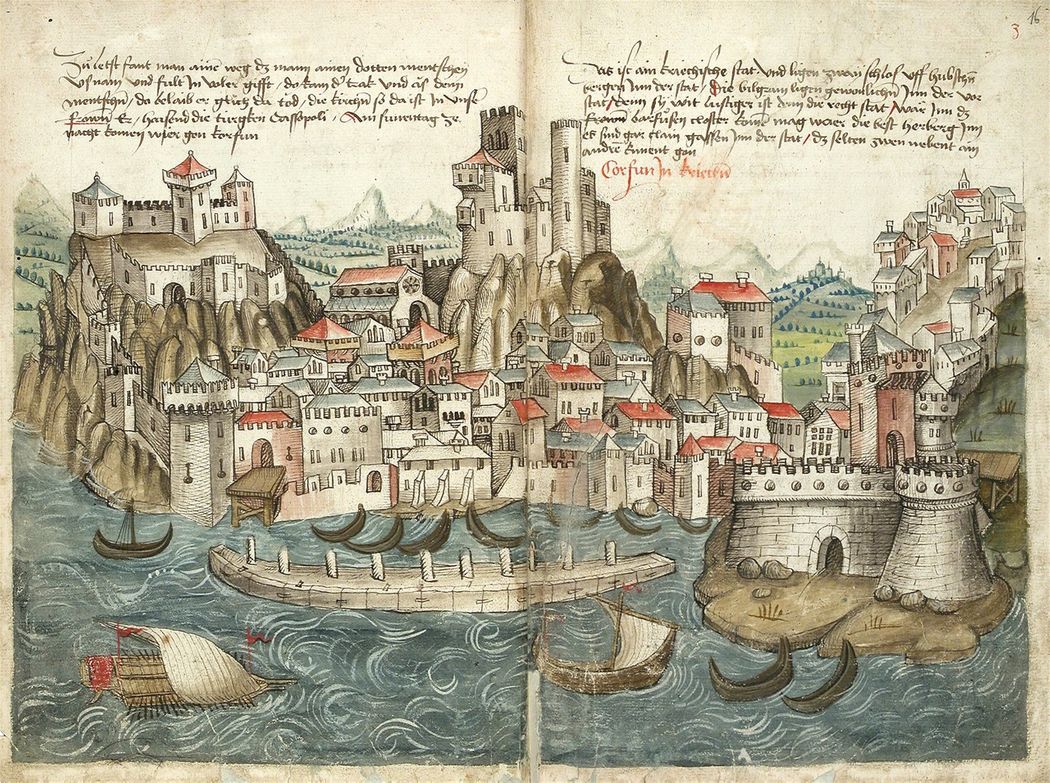 Zů letst fant man aine weg dz mann ainen dotten mentschen
vsnam und fült in voler gifft / do kam d' trak und äs denn
mentschen / do belaib er gluch da tod / die kirchen so da ist in unser
frawen Er / haisend die türgken Cassopoli / Am sunentag ze
nacht komen wier gen korfun
16
3
Das ist ain kriechische stat und ligen zwaÿ schlos uff hubschen
bergen inn der stat / Die bilgram ligen gewonlichen inn der vor
stat / denn sÿ wit lustiger ist denn die recht stat / waer inn dz
barfusen closter kome mag waer die best herberg inn
es sind gar clain gassen inn der stat / dz selten zwen nebent ain
andre kunent gan
Corfun in kriechen